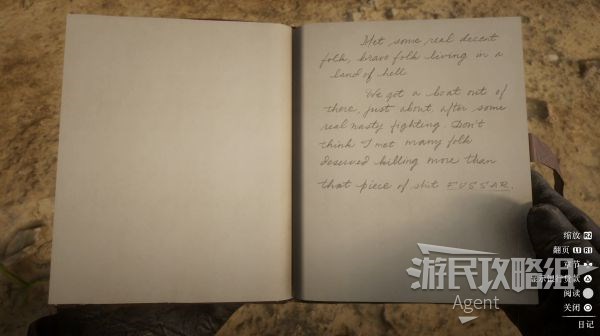 Met some real decent
folk, brave folk living in a
land of hell
We got a boat out of
there, just about, after some
real nasty fighting. Don't
think I met many folk
deserved killing more than
that piece of shit FUSSAR.
缩放 R2
翻页 L1 R1
章节
关闭
阅读
日记
游民攻略组
Agent